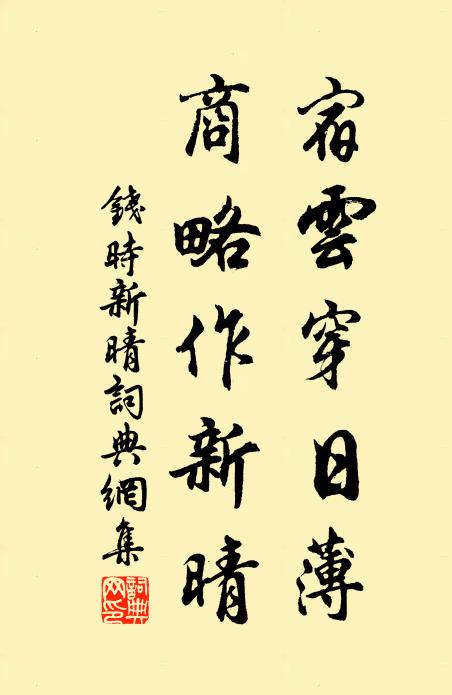 宿雲穿日薄
商略作新晴
錢時新晴詞典網集
詞典網印